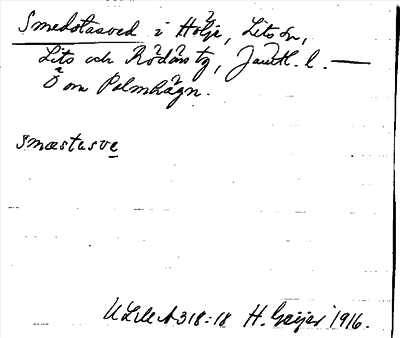 Smedstasved i Hölje, Lits sn,
Lits och Rödöns tg, Jämtl. l. —
Ö om Palmhägn.
smæstasve
ULMA 318:18 H. Geijer 1916.